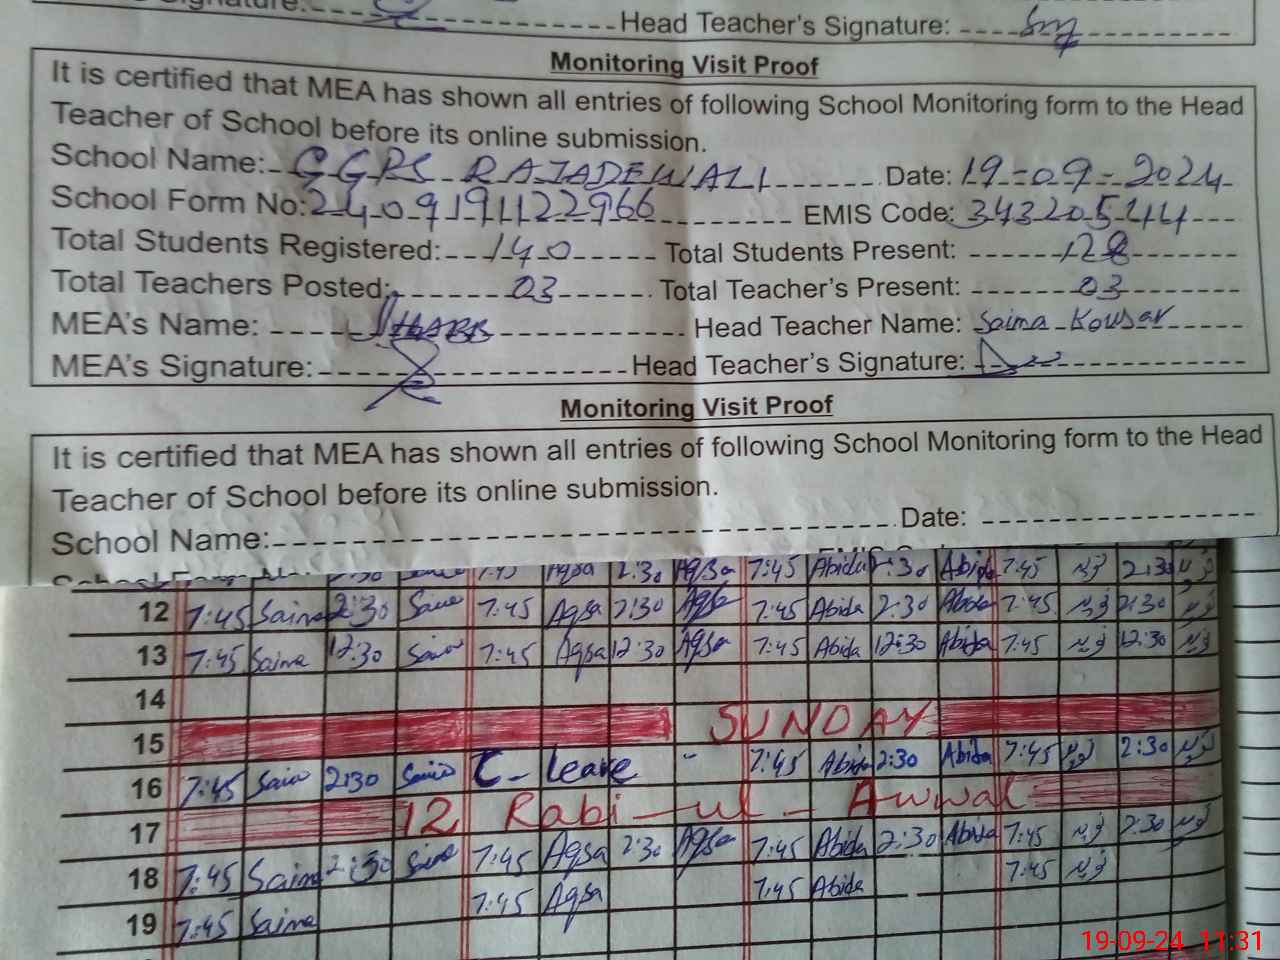 Head Teacher's Signature:
Monitoring Visit Proof
It is certified that MEA has shown all entries of following School Monitoring form to the Head
Teacher of School before its online submission.
School Name: GGPS RAJADEWALI Date: 19-09-2024
School Form No: 2409191122966 EMIS Code: 34320544
Total Students Registered: 140 Total Students Present: 128
Total Teachers Posted: 03 Total Teacher's Present: 03
MEA's Name: Head Teacher Name: Saima Kousar
MEA's Signature: Head Teacher's Signature:
Monitoring Visit Proof
It is certified that MEA has shown all entries of following School Monitoring form to the Head
Teacher of School before its online submission.
School Name: Date:
Aqsa 2:30 Aqsa 7:45 Abida Abida 7:45 2:30
12 7:45 Saima 2:30 7:45 Aqsa 2:30 Aqsa 7:45 Abida 2:30 Abida 7:45 2:30
13 7:45 Saima 12:30 7:45 Aqsa 12:30 Aqsa 7:45 Abida 12:30 Abida 7:45 12:30
14
15 SUNDAY
16 7:45 2:30 C-leave 7:45 Abida 2:30 Abida 7:45 2:30
17 12 Rabi-ul-Awwal
18 7:45 Saima 2:30 7:45 Aqsa 2:30 Aqsa 7:45 Abida 2:30 Abida 7:45 2:30
19 7:45 Saima 7:45 Aqsa 7:45 Abida 7:45
19-09-24 11:31